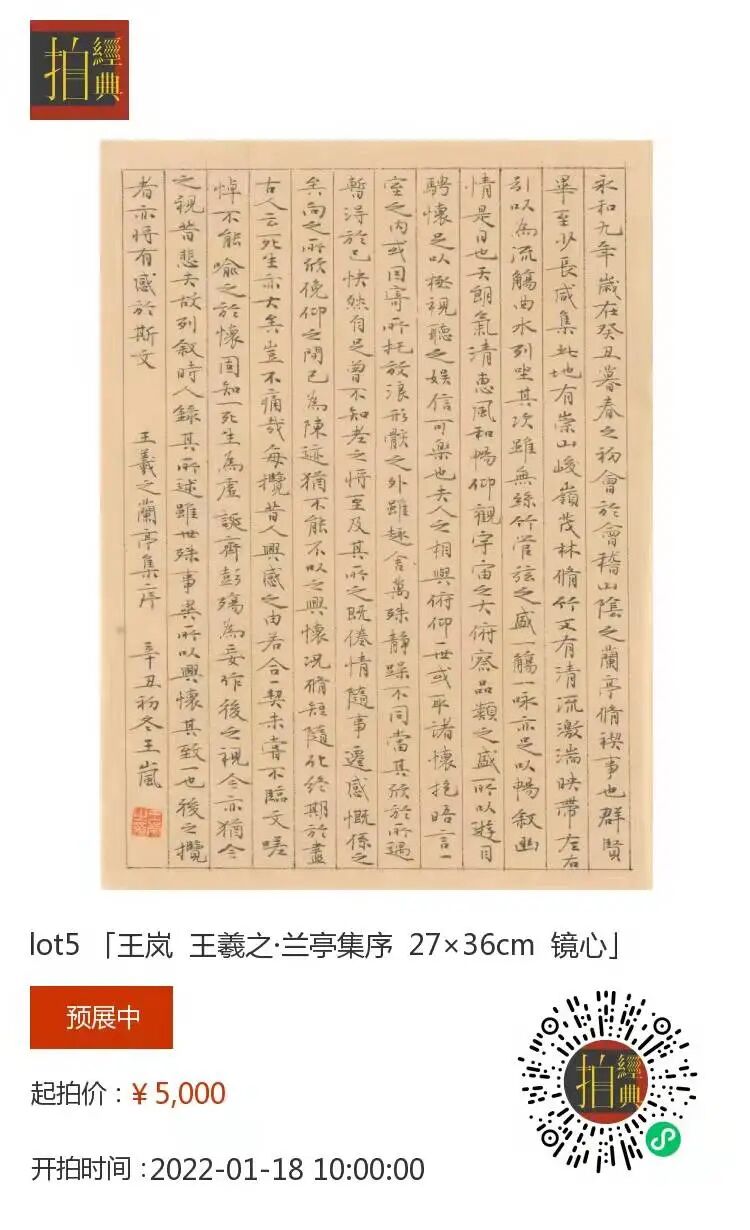 拍經典
永和九年歲在癸丑暮春之初會於會稽山陰之蘭亭脩禊事也群賢
畢至少長咸集此地有崇山峻嶺茂林脩竹又有清流激湍映帶左右
引以為流觴曲水列坐其次雖無絲竹管弦之盛觴一詠亦足以暢敘幽
情是日也天朗氣清惠風和暢仰觀宇宙之大俯察品類之盛所以遊目
騁懷足以極視聽之娛信可樂也夫人之相與俯仰一世或取諸懷抱晤言一
室之內或因寄所托放浪形骸之外雖趣舍萬殊靜躁不同當其欣於所遇
暫得於己快然自足曾不知老之將至及其所之既倦情隨事遷感慨係之
矣向之所欣俛仰之閒已為陳迹猶不能不以之興懷況脩短隨化終期於盡
古人云死生亦大矣豈不痛哉每攬昔人興感之由若合一契未嘗不臨文嗟
悼不能喻之於懷固知一死生為虛誕齊彭殤為妄作後之視今亦猶今
之視昔悲夫故列敘時人錄其所述雖世殊事異所以興懷其致一也後之攬
者亦將有感於斯文 王羲之蘭亭集序 辛丑初冬王嵐
lot5 「王岚 王羲之·兰亭集序 27×36cm 镜心」
预展中
起拍价：¥ 5,000
开拍时间：2022-01-18 10:00:00
拍經典